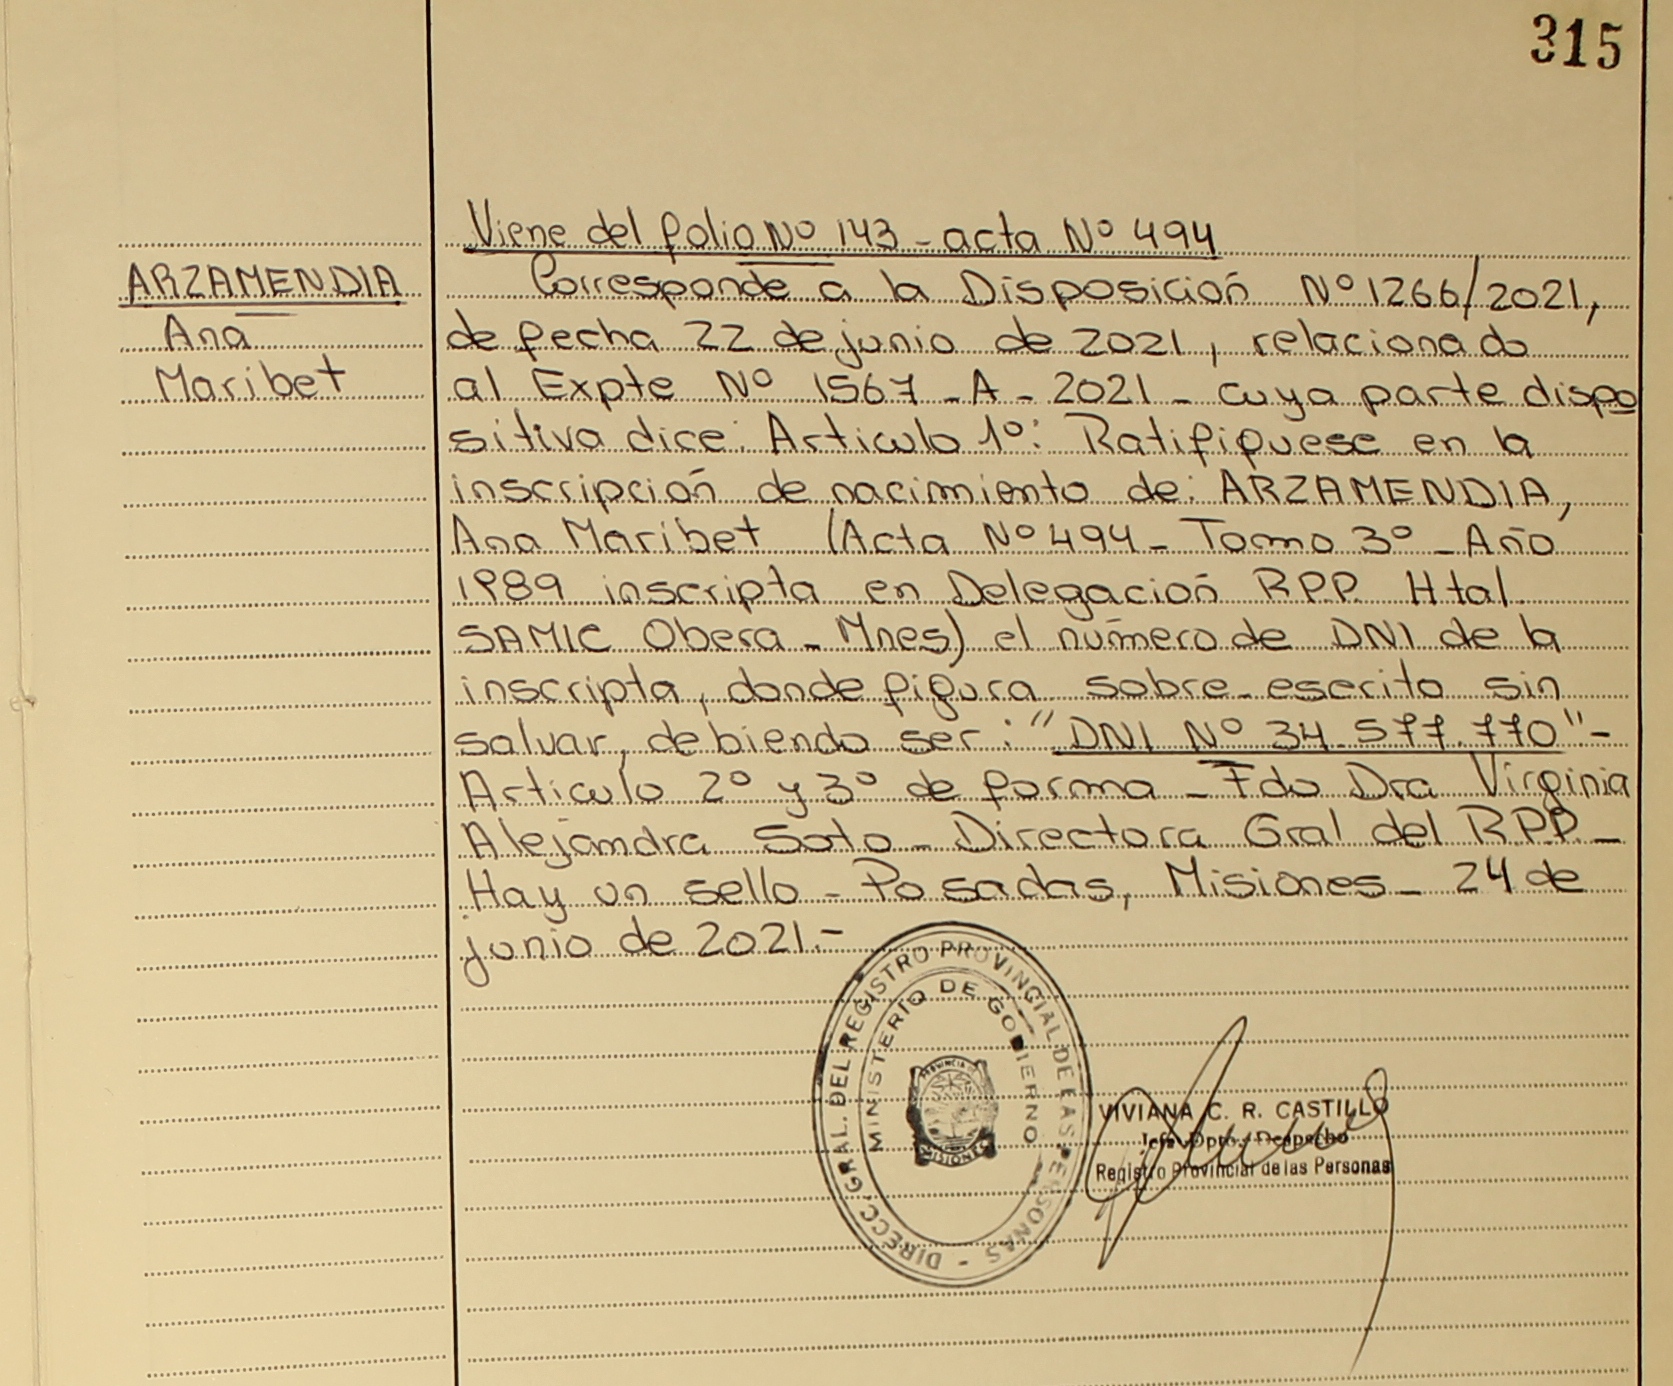 315
Viene del folio Nº 143 - acta Nº 494
ARZAMENDIA
Ana
Maribet
Corresponde a la Disposición Nº 1266/2021,
de fecha 22 de junio de 2021, relacionado
al Expte Nº 1567 - A - 2021 - cuya parte dispo
sitiva dice: Articulo 1º: Ratifiquese en la
inscripción de nacimiento de: ARZAMENDIA,
Ana Maribet (Acta Nº 494 - Tomo 3º - Año
1989 inscripta en Delegación R.P.P. Htal.
SAMIC Obera - Mnes) el número de DNI de la
inscripta, donde figura sobre-escrito sin
salvar, debiendo ser: "DNI Nº 34.577.770" -
Articulo 2º y 3º de forma - Fdo Dra Virginia
Alejandra Soto - Directora Gral del R.P.P. -
Hay un sello - Posadas, Misiones - 24 de
junio de 2021.-
DIRECC. GRAL. DEL REGISTRO PROVINCIAL DE LAS PERSONAS -
MINISTERIO DE GOBIERNO
PROVINCIA DE
MISIONES
VIVIANA C. R. CASTILLO
Jefe Dpto. Despacho
Registro Provincial de las Personas